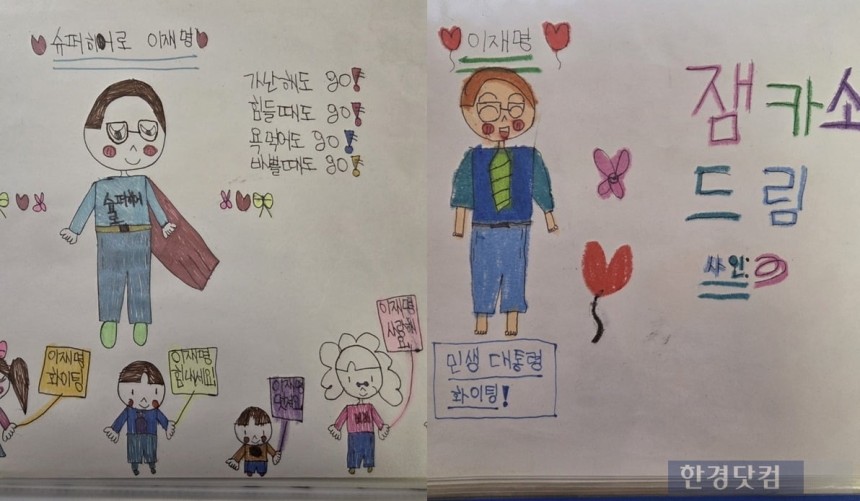 슈퍼히어로 이재명
가난해도 go!
힘들때도 go!
욕먹어도 go!
바쁠때도 go!
슈퍼히어
로
이재명
화이팅
이재명
힘내세요!
이재명
이재명
사랑해
요
이재명
잼카소
드림
사인:
민생 대통령
화이팅!
한경닷컴